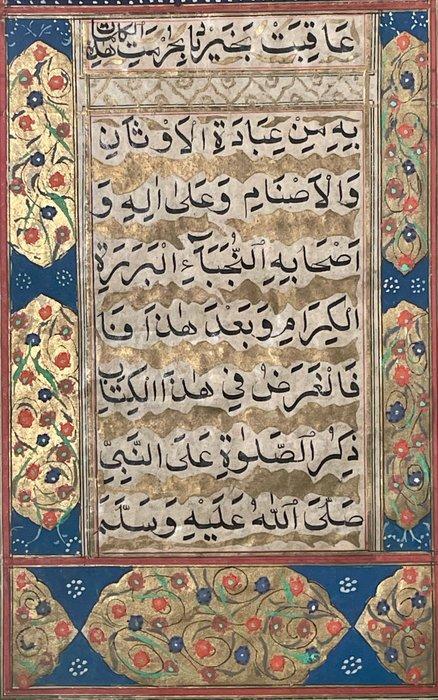 عَاقِبَتْ بَخَيْر يَا بِحُرْمَتِ
بِهِ مِنْ عِبَادَةِ الْاَوْثَانِ
وَالْاَصْنَامِ وَعَلٰى اٰلِهِ وَ
اَصْحَابِهِ النُّجَبَاۤءِ الْبَرَرَةِ
الْكِرَامِ وَبَعْدَ هٰذَا فَا
فَالْغَرَضُ فِي هٰذَا الْكِتَابِ
ذِكْرُ الصَّلٰوةِ عَلَى النَّبِيِّ
صَلَّى اللّٰهُ عَلَيْهِ وَسَلَّمَ